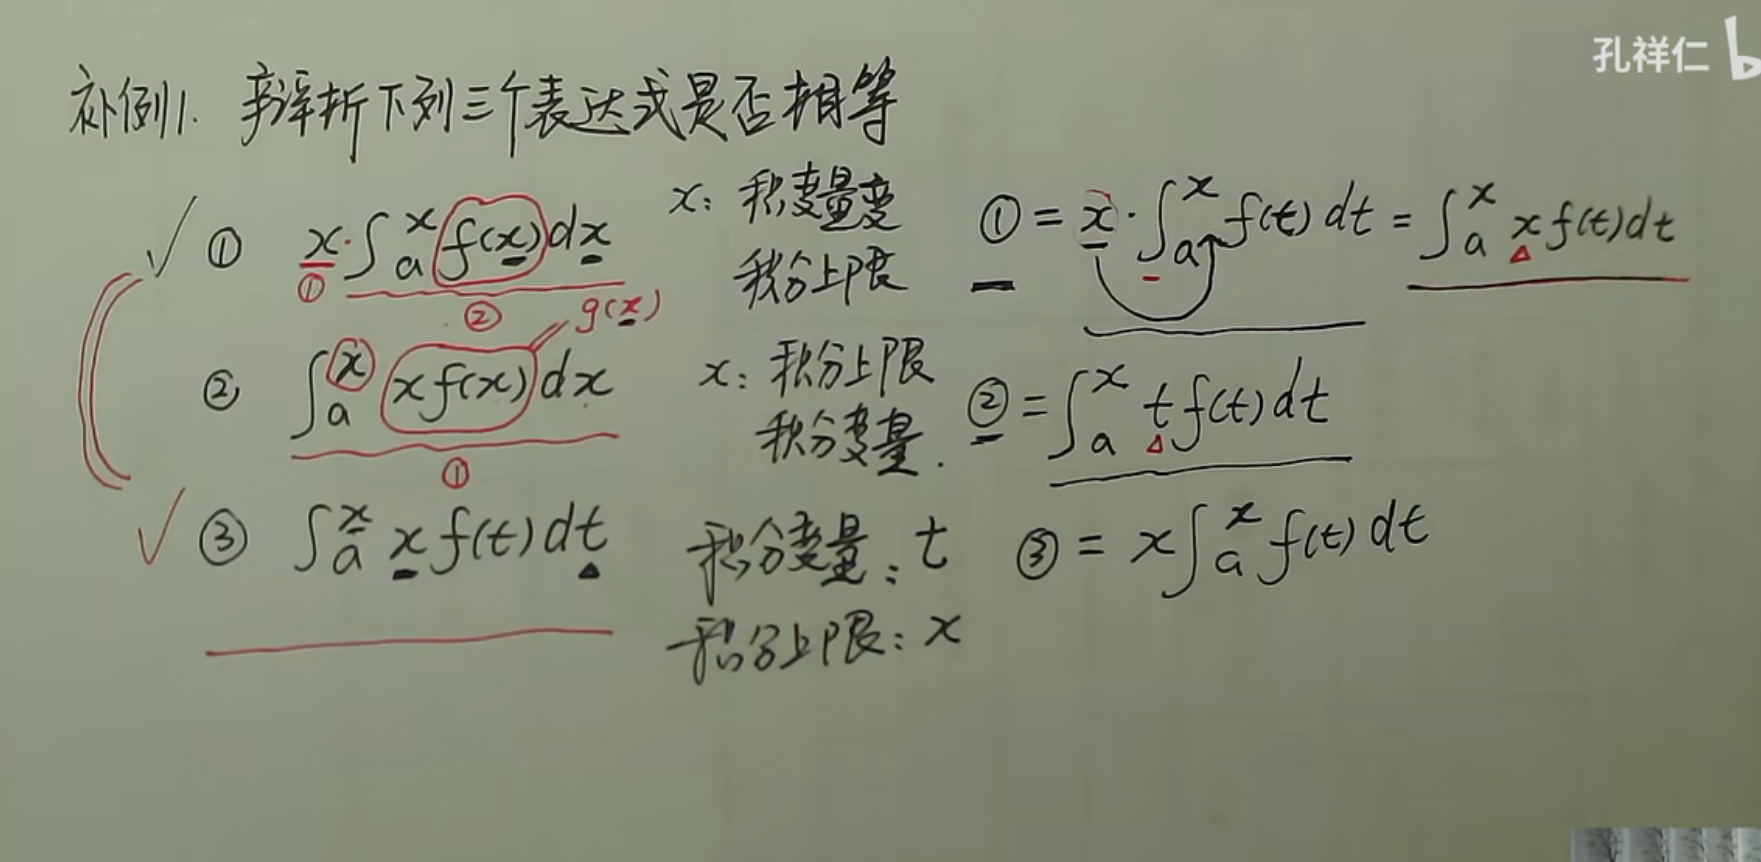 孔祥仁
补例1. 辩析下列三个表达式是否相等
① x·∫ₐˣ f(x)dx
① ②
g(x)
x: 积变量变
积分上限
① = x·∫ₐˣ f(t)dt = ∫ₐˣ xf(t)dt
② ∫ₐˣ xf(x)dx
①
x: 积分上限
积分变量.
② = ∫ₐˣ tf(t)dt
③ ∫ₐˣ xf(t)dt
积分变量: t
积分上限: x
③ = x∫ₐˣ f(t)dt